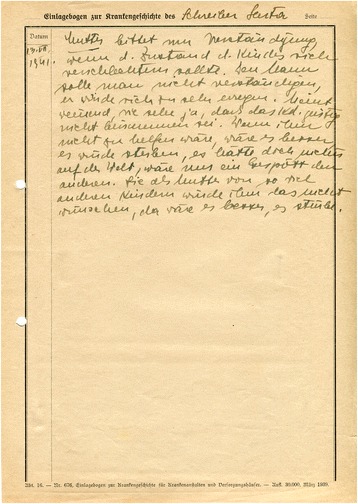 Einlagebogen zur Krankengeschichte des Schreiber Seite
Datum
1941. Mutter bittet um Verständigung,
wenn d. Zustand d. Kindes sich
verschlechtern sollte. Den Mann
solle man nicht verständigen,
er würde sich zu sehr erregen. Meint
weinend, sie sehe ja, dass das Kd. geistig
nicht beisammen sei. Wenn ihm
nicht zu helfen wäre, wäre es besser
es würde sterben, es hätte doch nichts
auf der Welt, wäre nur ein Gespött der
anderen. Sie als Mutter von so viel
anderen Kindern würde ihm das nicht
wünschen, da wäre es besser, es sterbe.
Nr. 676, Einlagebogen zur Krankengeschichte für Krankenanstalten und Versorgungshäuser. — Aufl. 30.000, März 1939.